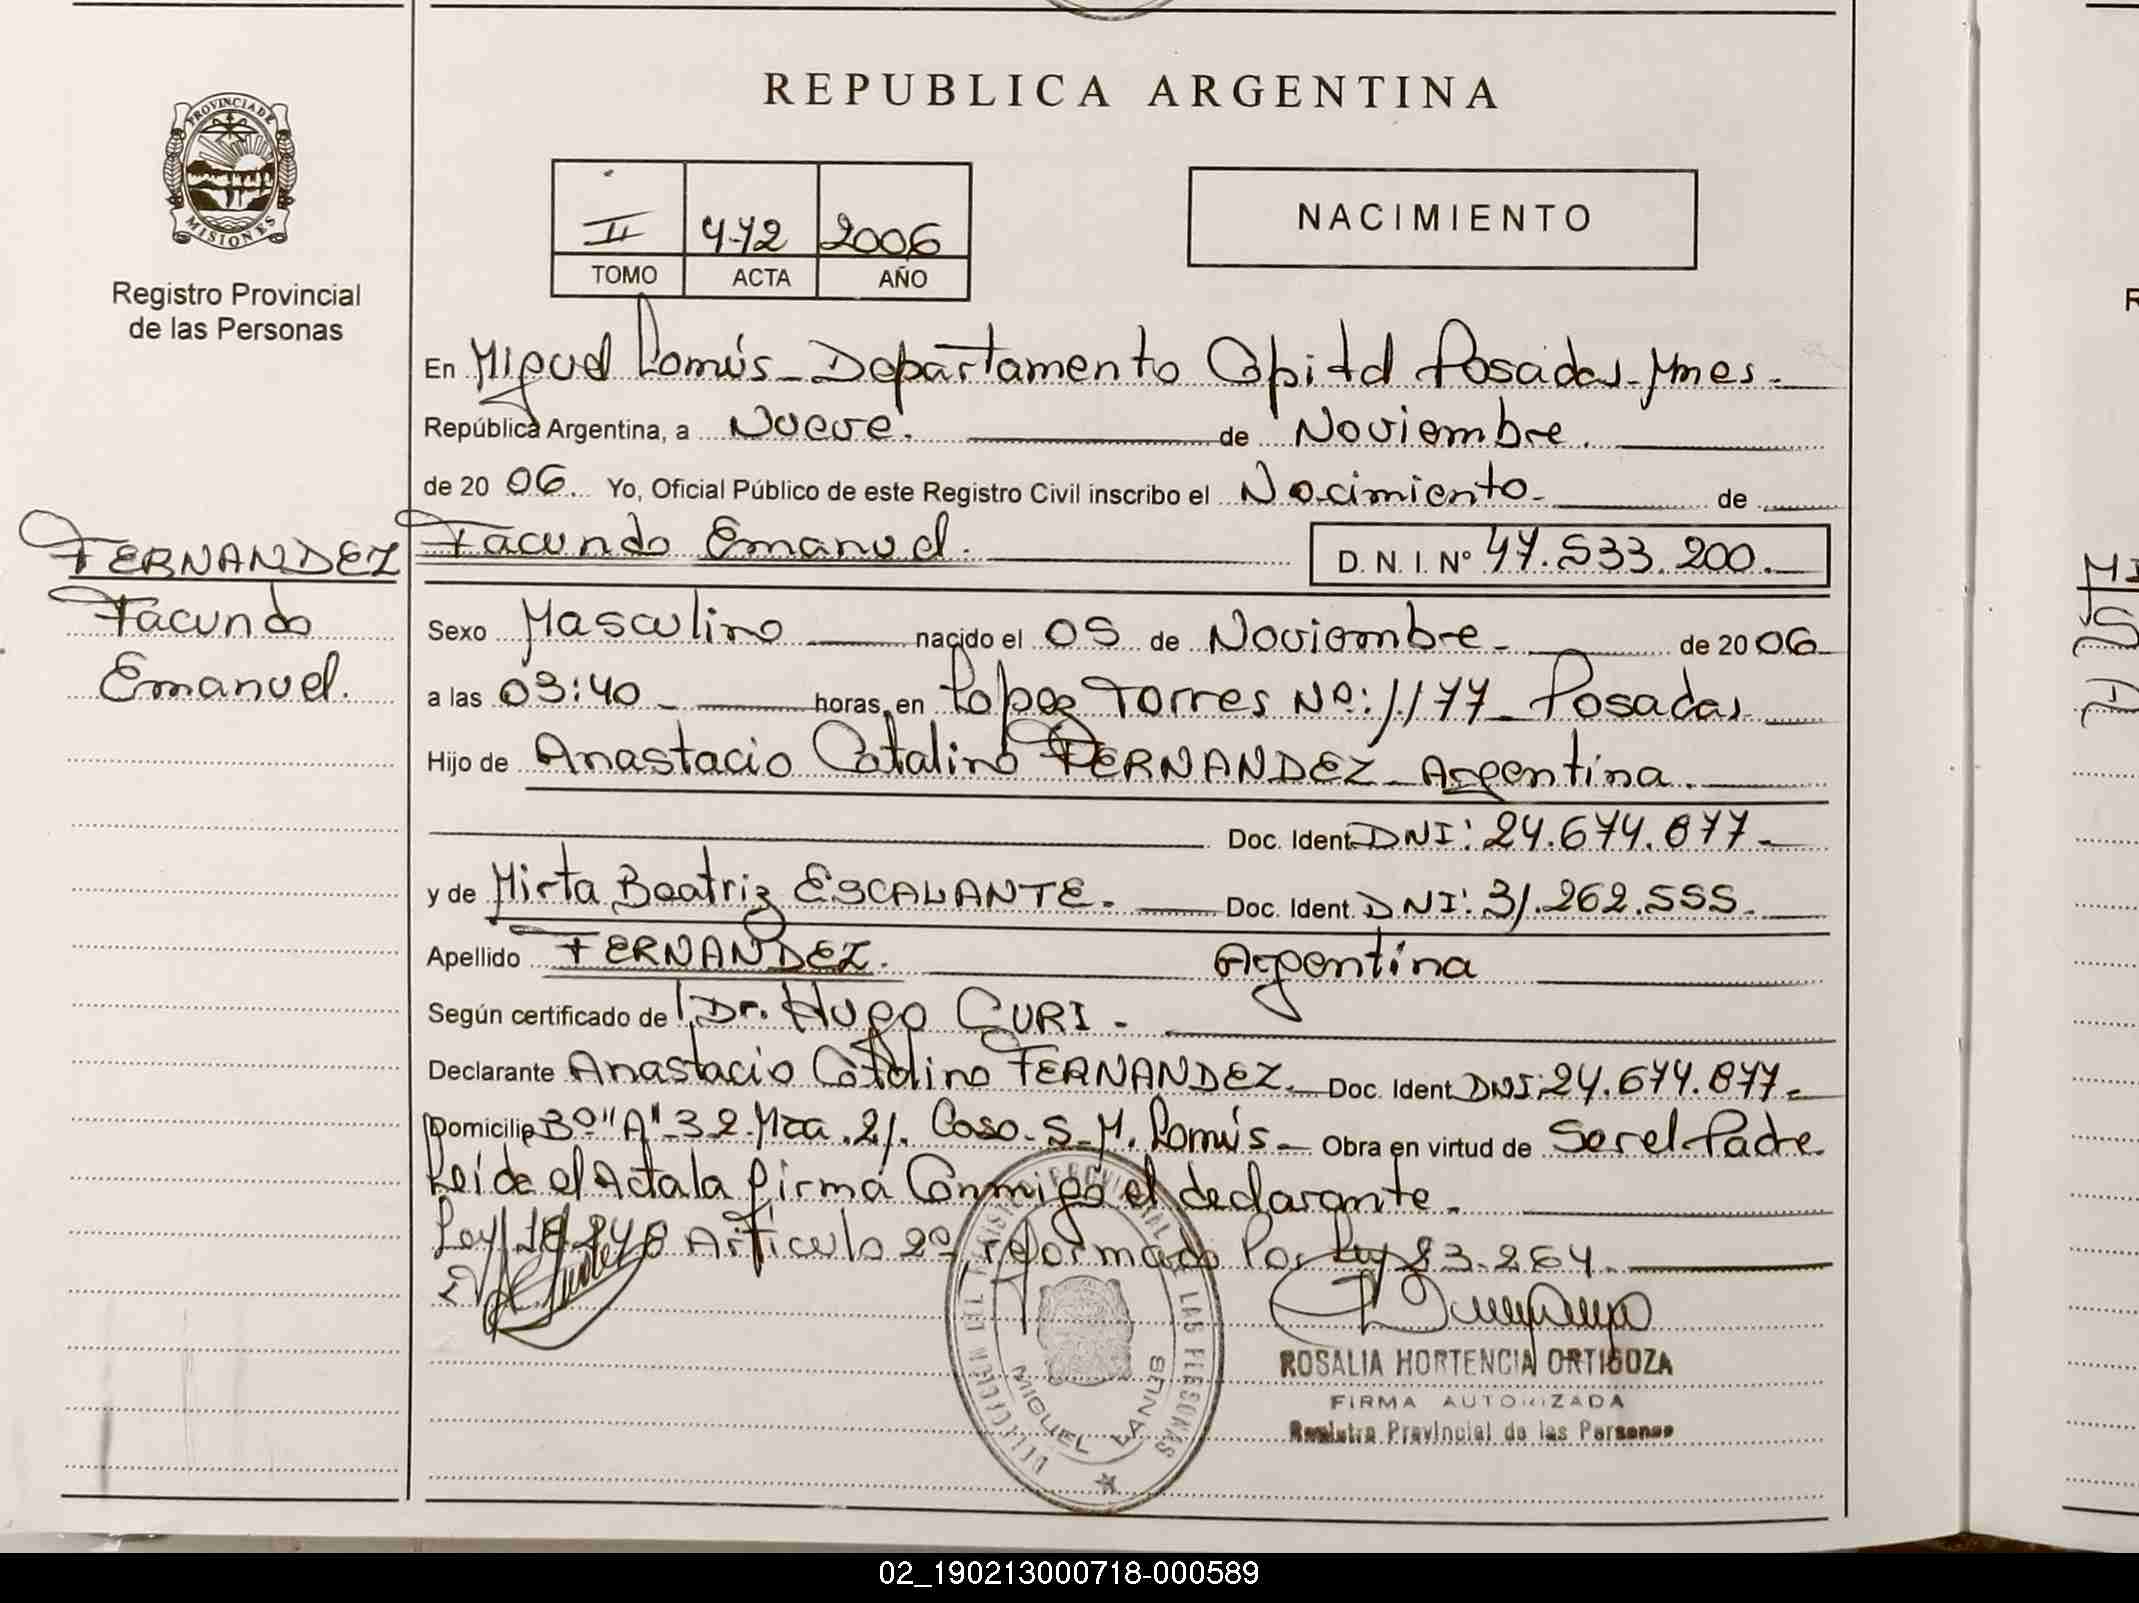 REPUBLICA ARGENTINA
PROVINCIA DE
MISIONES
Registro Provincial
de las Personas
II 472 2006
TOMO ACTA AÑO
NACIMIENTO
En Miguel Lanús - Departamento Capital Posadas - Mnes -
República Argentina, a Nueve. de Noviembre.
de 20 06. Yo, Oficial Público de este Registro Civil inscribo el Nacimiento - de
FERNANDEZ
Facundo
Emanuel.
Facundo Emanuel. D. N. I. Nº 47.533.200.
Sexo Masculino nacido el 05 de Noviembre - de 20 06
a las 03:40 - horas, en Lopez Torres Nº: 1177 - Posadas
Hijo de Anastacio Catalino FERNANDEZ - Argentina.
Doc. Ident. DNI: 24.674.877 -
y de Mirta Beatriz ESCALANTE. Doc. Ident. DNI: 31.262.555.
Apellido FERNANDEZ. Argentina
Según certificado de Dr. Hugo CURI -
Declarante Anastacio Catalino FERNANDEZ. Doc. Ident. DNI: 24.674.877 -
Domicilio Bº "A" 32 Mza. 21. Casa S - M. Lanús - Obra en virtud de Ser el Padre
Leída el Acta la firma Conmigo el declarante.
Ley 18.248 Articulo 2º reformado Por Ley 23.264.
MIGUEL LANUS
ROSALIA HORTENCIA ORTIGOZA
FIRMA AUTORIZADA
Registro Provincial de las Personas
02_190213000718-000589